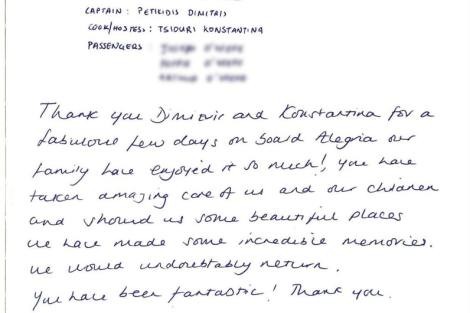 CAPTAIN : PETIKIDIS DIMITRIS
COOK/HOSTESS : TSIOURI KONSTANTINA
PASSENGERS :
Thank you Dimitris and Konstantina for a
fabulous few days on board Alegria our
family have enjoyed it so much! you have
taken amazing care of us and our children
and should us some beautiful places
we have made some incredible memories.
we would undoubtably return.
You have been fantastic! Thank you.